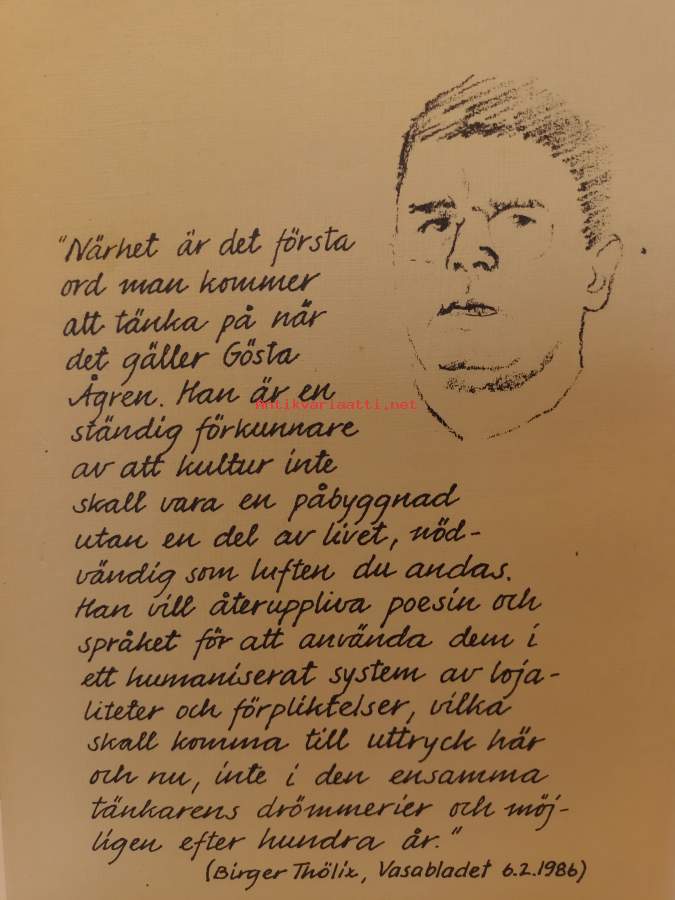 "Närhet är det första
ord man kommer
att tänka på när
det gäller Gösta
Ågren. Han är en
Antikvariaatti.net
ständig förkunnare
av att kultur inte
skall vara en påbyggnad
utan en del av livet, nöd-
vändig som luften du andas.
Han vill återuppliva poesin och
språket för att använda dem i
ett humaniserat system av loja-
liteter och förpliktelser, vilka
skall komma till uttryck här
och nu, inte i den ensamma
tänkarens drömmerier och möj-
ligen efter hundra år."
(Birger Thölix, Vasabladet 6.2.1986)